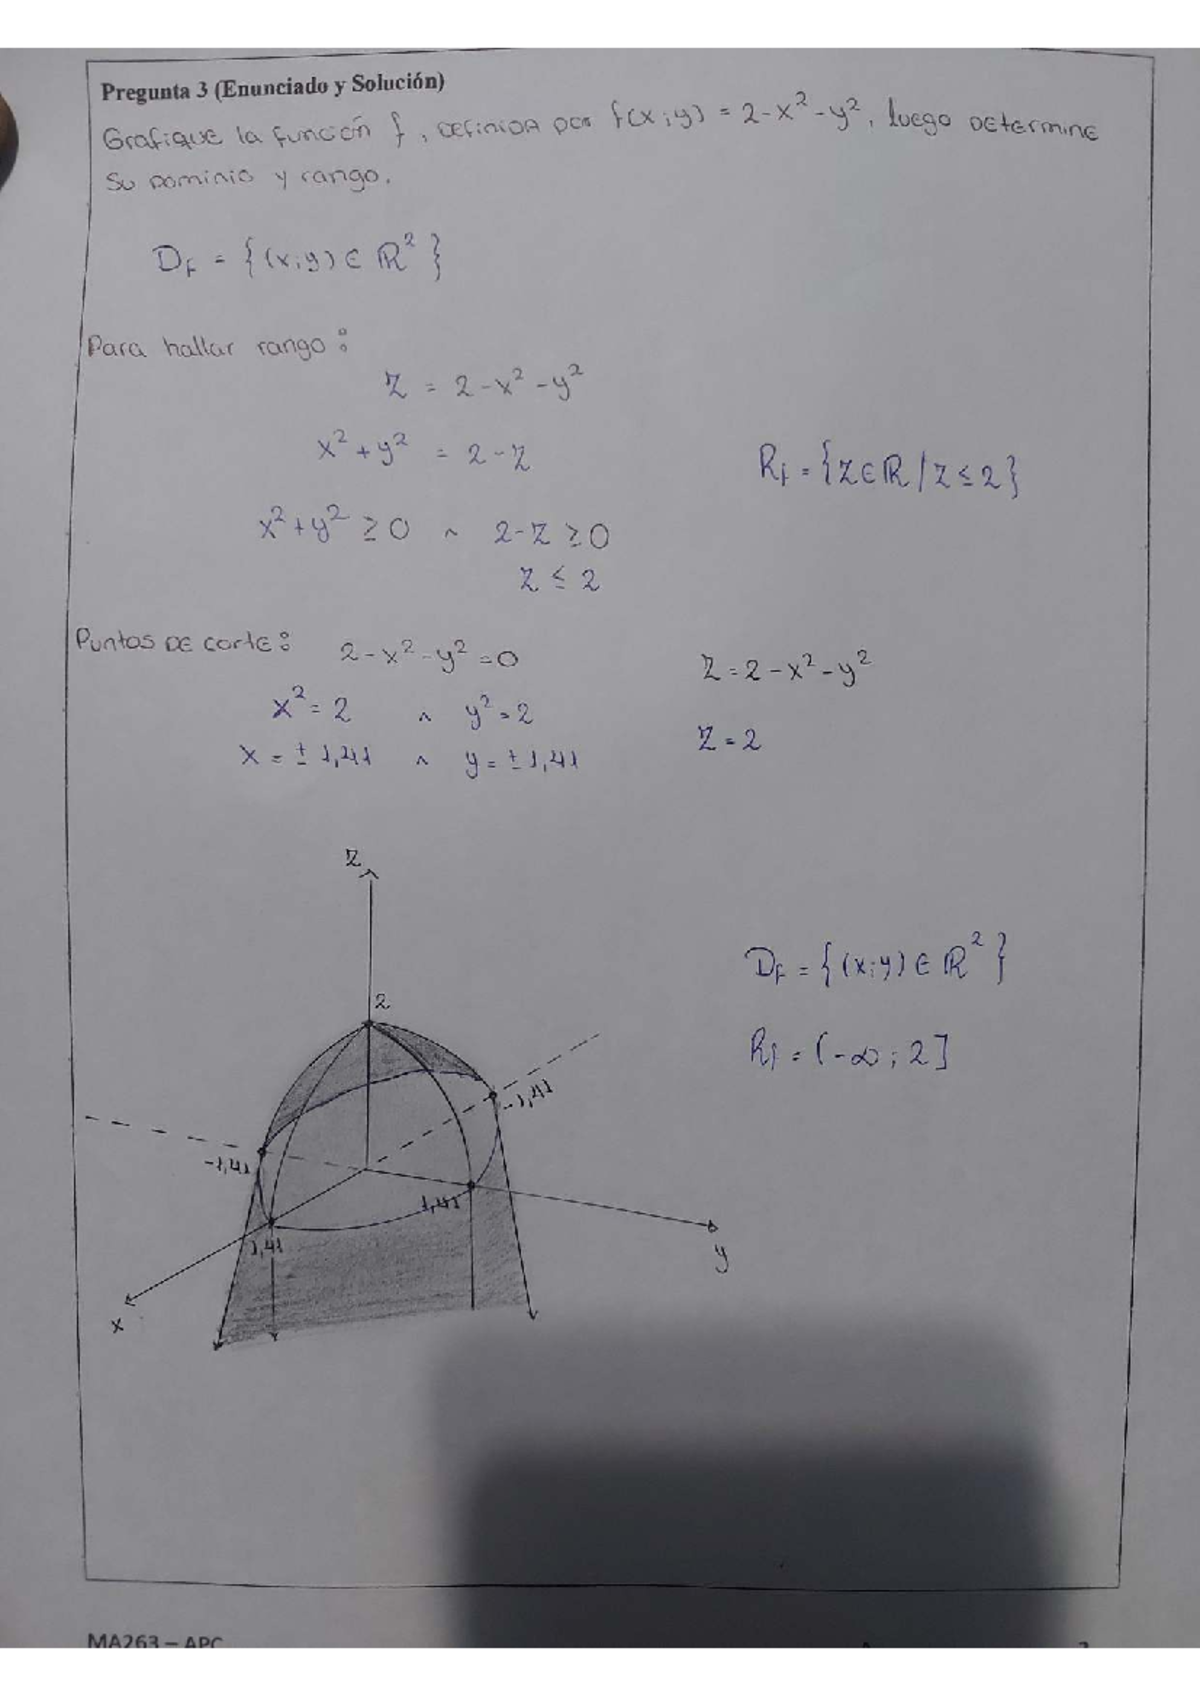 Pregunta 3 (Enunciado y Solución)
Grafique la función f, definida por f(x;y) = 2-x²-y², luego determine
su dominio y rango.
Df = {(x;y) ∈ ℝ²}
Para hallar rango:
z = 2-x²-y²
x²+y² = 2-z
Rf = {z∈ℝ/z≤2}
x²+y² ≥0 ^ 2-z ≥0
z ≤ 2
Puntos de corte: 2-x²-y²=0
z=2-x²-y²
x²=2 ^ y²=2
x=±1,41 ^ y=±1,41
z=2
z
2
-1,41
-1,41
1,41
1,41
x
y
Df = {(x;y) ∈ ℝ²}
Rf = (-∞; 2]
MA263 – APC